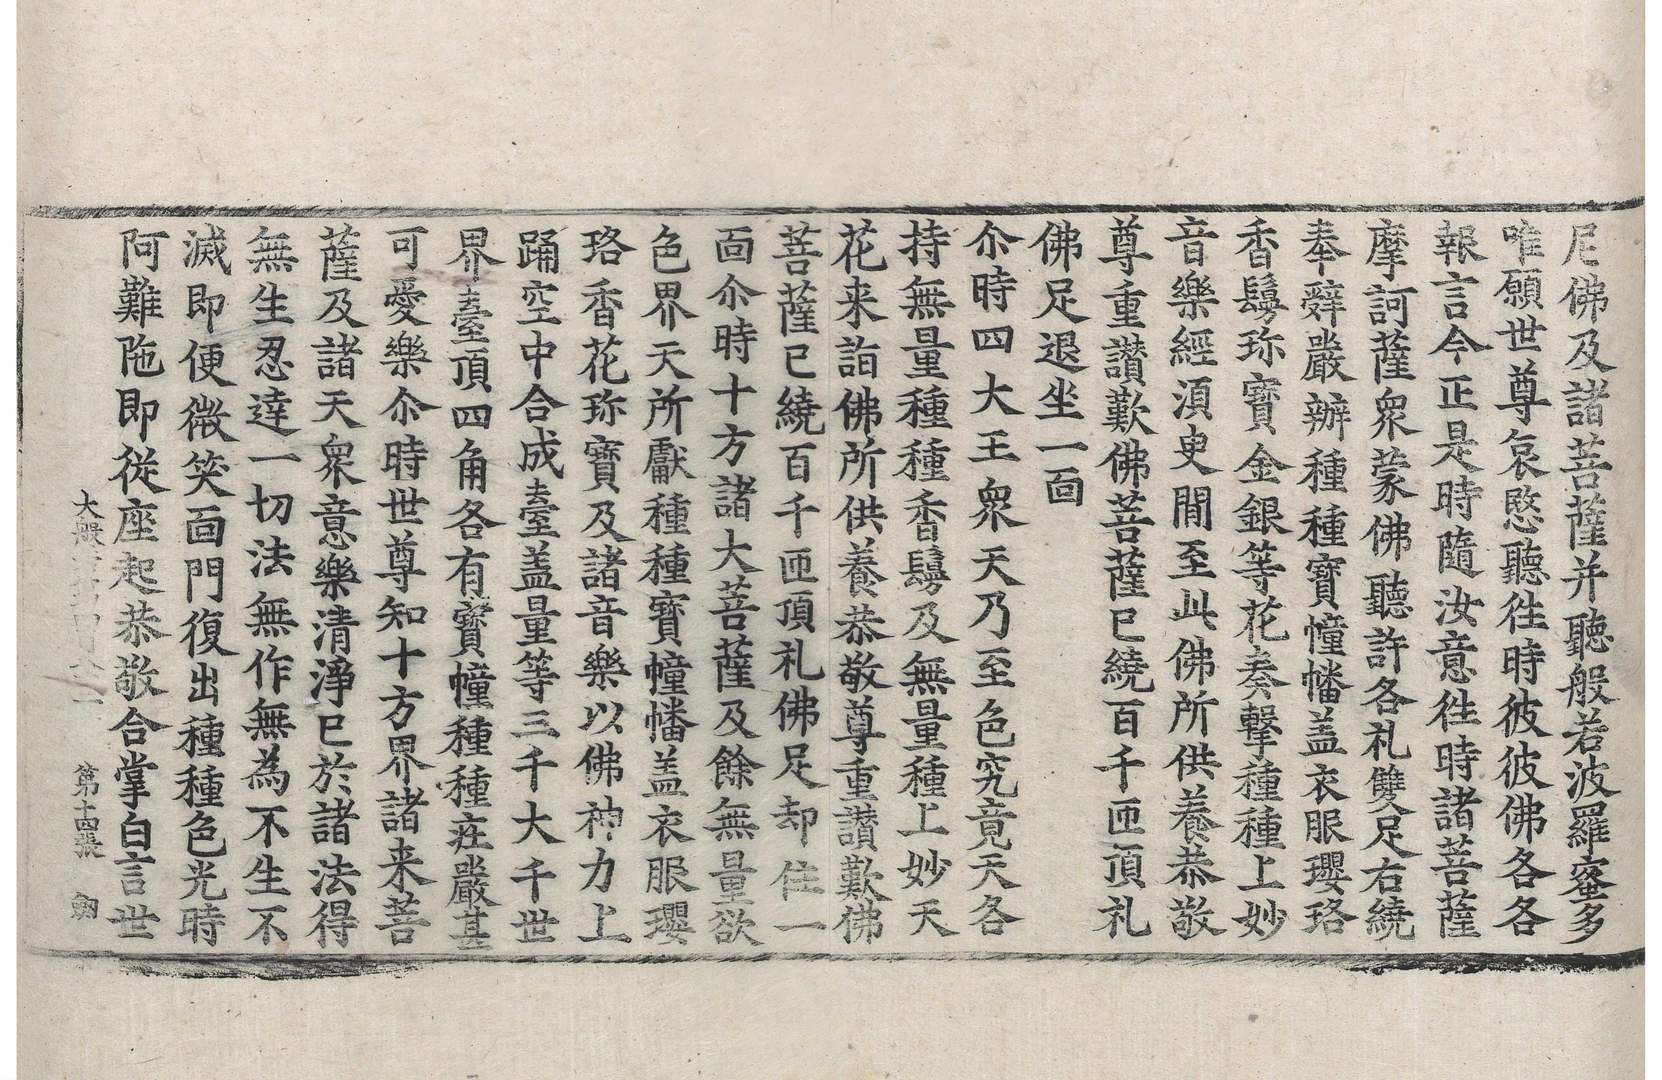 尼佛及諸菩薩并聽般若波羅蜜多
唯願世尊哀愍聽徃時彼彼佛各各
報言今正是時隨汝意徃時諸菩薩
摩訶薩衆蒙佛聽許各礼雙足右繞
奉辤嚴辦種種寶幢幡盖衣服瓔珞
香鬘珎寶金銀等花奏擊種種上妙
音樂經湏臾間至此佛所供養恭敬
尊重讃歎佛菩薩已繞百千匝頂礼
佛足退坐一面
尒時四大王衆天乃至色究竟天各
持無量種種香鬘及無量種上妙天
花来詣佛所供養恭敬尊重讃歎佛
菩薩已繞百千匝頂礼佛足却住一
面尒時十方諸大菩薩及餘無量欲
色界天所獻種種寶幢幡盖衣服瓔
珞香花珎寶及諸音樂以佛神力上
踊空中合成臺盖量等三千大千世
界臺頂四角各有寶幢種種庄嚴甚
可愛樂尒時世尊知十方界諸来菩
薩及諸天衆意樂清淨已於諸法得
無生忍達一切法無作無為不生不
滅即便微笑面門復出種種色光時
阿難陁即從座起恭敬合掌白言世
大般 第十四張